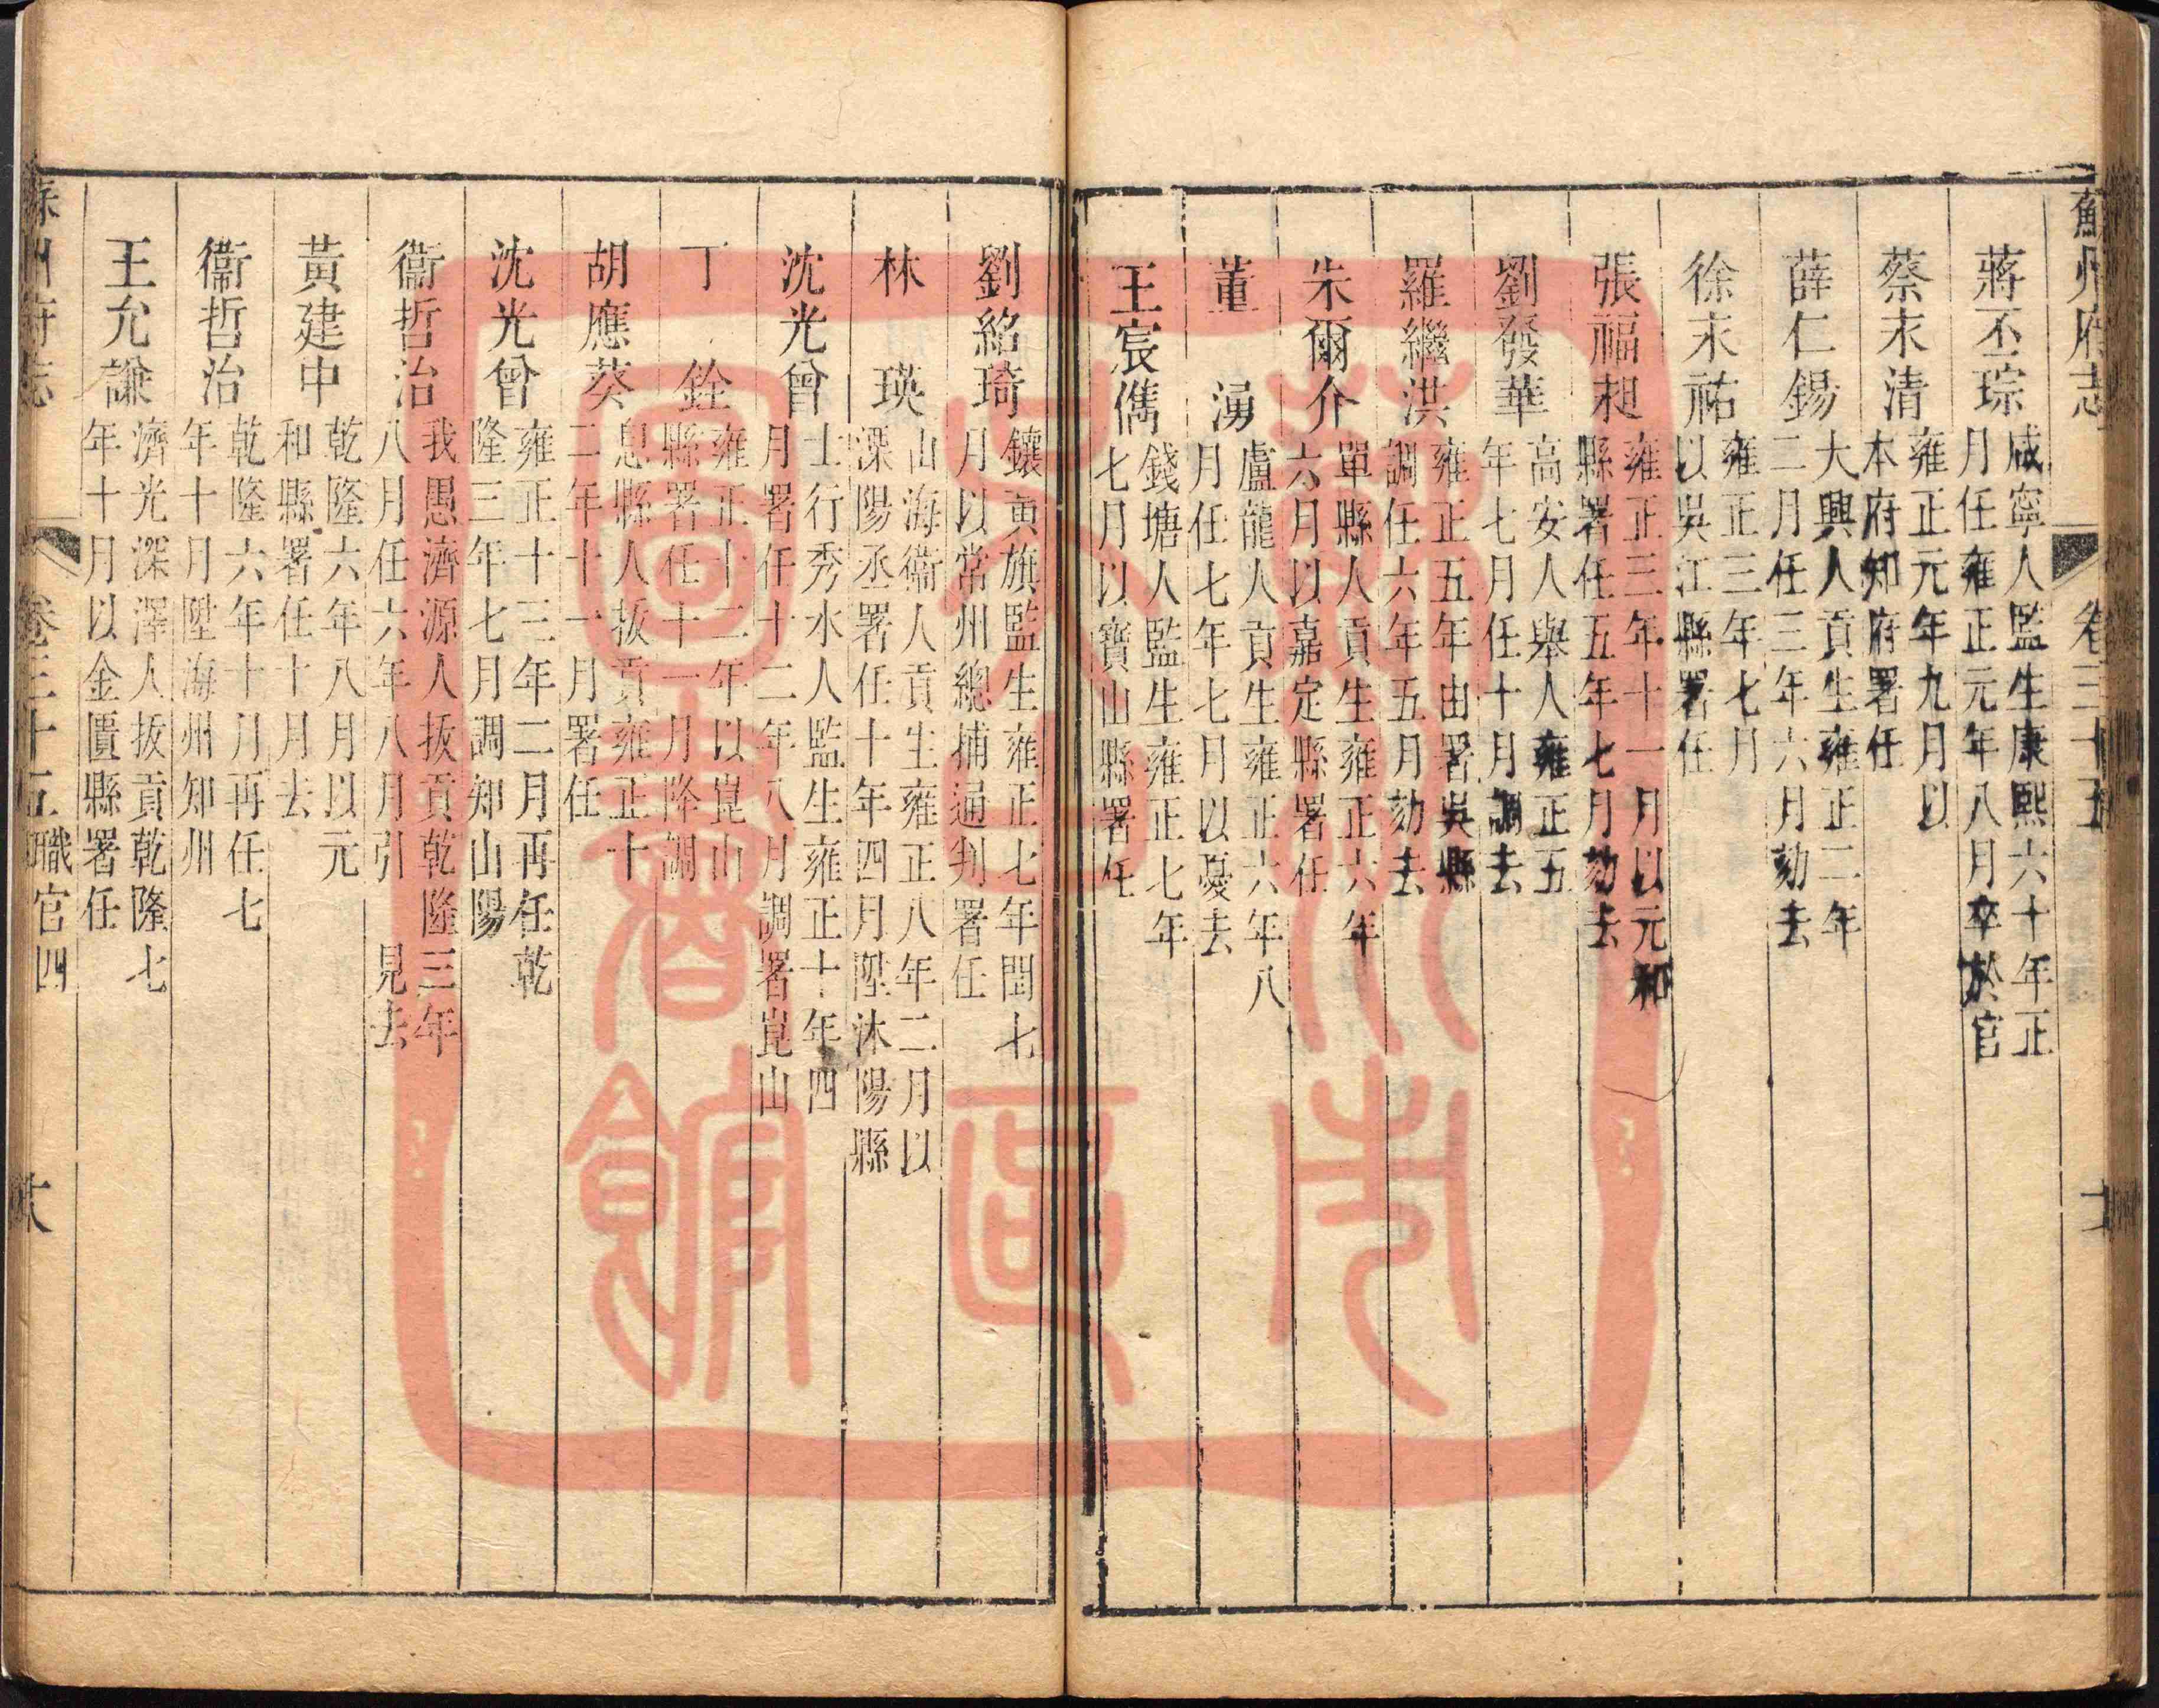 蘇州府志
卷三十五
蔣丕琮
咸寧人監生康熙六十年正
月任雍正元年八月卒於官
蔡永清
雍正元年九月以
本府知府署任
薛仁錫
大興人貢生雍正二年
二月任三年六月劾去
徐永祐
雍正三年七月
以吳江縣署任
張福昶
雍正三年十一月以元和
縣署任五年七月劾去
劉發華
高安人舉人雍正五
年七月任十月調去
羅繼洪
雍正五年由署吳縣
調任六年五月劾去
朱爾介
單縣人貢生雍正六年
六月以嘉定縣署任
董湧
盧龍人貢生雍正六年八
月任七年七月以憂去
王宸儁
錢塘人監生雍正七年
七月以寶山縣署任
劉紹琦
鑲黃旗監生雍正七年閏七
月以常州總捕通判署任
林瑛
山海衞人貢生雍正八年二月以
溧陽丞署任十年四月陞沐陽縣
沈光曾
士行秀水人監生雍正十年四
月署任十二年八月調署崑山
丁銓
雍正十二年以崑山
縣署任十一月降調
胡應葵
息縣人拔貢雍正十
二年十一月署任
沈光曾
雍正十三年二月再任乾
隆三年七月調知山陽
衞哲治
我愚濟源人拔貢乾隆三年
八月任六年八月引見去
黃建中
乾隆六年八月以元
和縣署任十月去
衞哲治
乾隆六年十月再任七
年十月陞海州知州
王允謙
濟光深澤人拔貢乾隆七
年十月以金匱縣署任
蘇州府志
卷三十五
職官四
蘇州市
圖書館